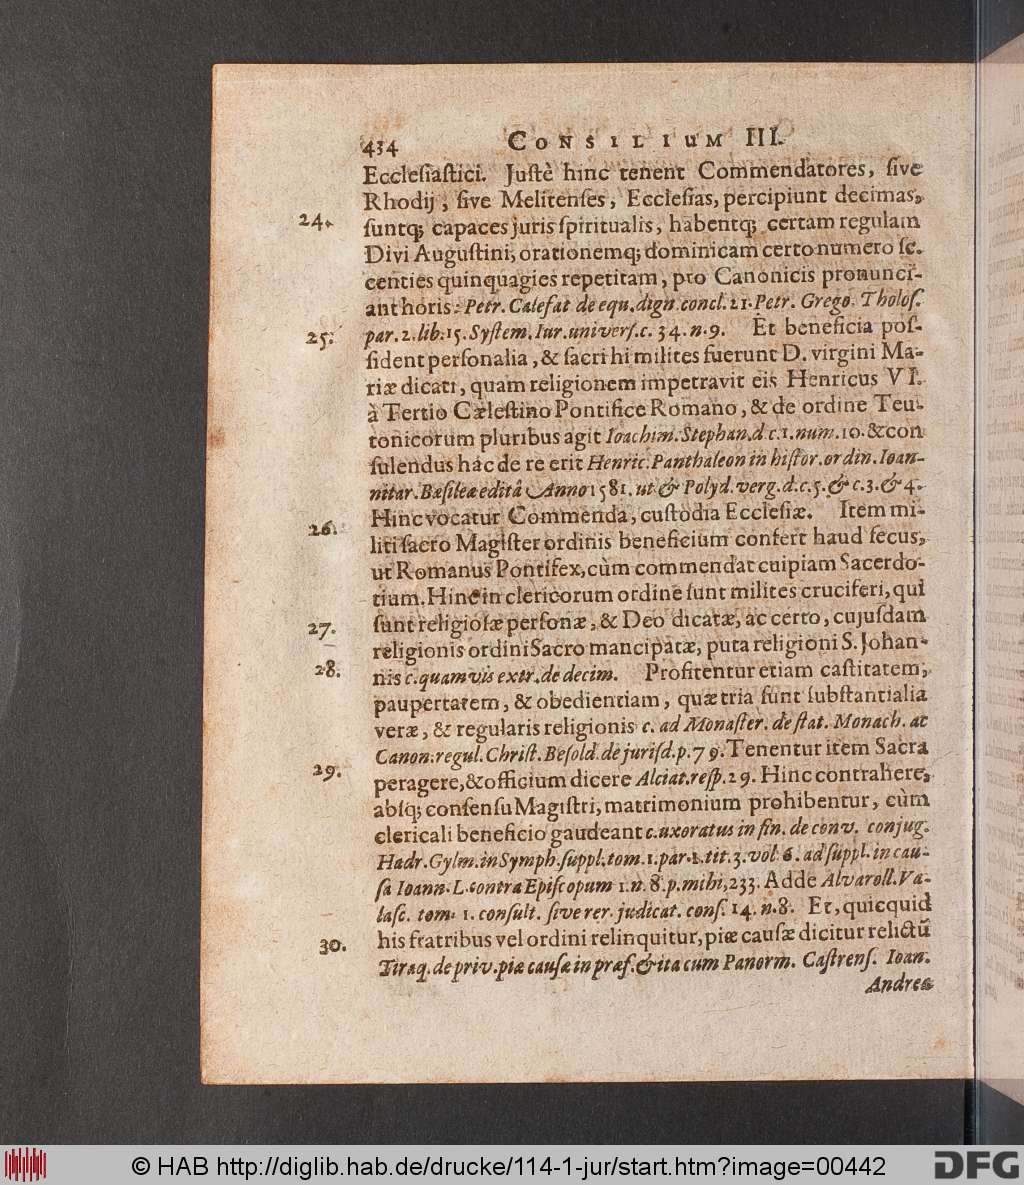 434 CONSILIUM III.
Ecclesiastici. Justè hinc tenent Commendatores, sive
Rhodij, sive Melitenses, Ecclesias, percipiunt decimas,
24. suntq; capaces juris spiritualis, habentq; certam regulam
Divi Augustini, orationemq; dominicam certo numero se-
centies quinquagies repetitam, pro Canonicis pronunci-
ant horis: Petr. Calefat de equ. dign. concl. 21. Petr. Grego. Tholos.
25. par. 2. lib. 15. System. Iur. univers. c. 34. n. 9. Et beneficia pos-
sident personalia, & sacri hi milites fuerunt D. virgini Ma-
riæ dicati, quam religionem impetravit eis Henricus VI.
à Tertio Cælestino Pontifice Romano, & de ordine Teu-
tonicorum pluribus agit Ioachim. Stephan. d. c. 1. num. 10. & con
sulendus hâc de re erit Henric. Panthaleon in histor. ordin. Ioan-
nitar. Basileæ editâ Anno 1581. ut & Polyd. verg. d. c. 5. & c. 3. & 4.
26. Hinc vocatur Commenda, custodia Ecclesiæ. Item mi-
liti sacro Magister ordinis beneficium confert haud secus,
ut Romanus Pontifex, cùm commendat cuipiam Sacerdo-
tium. Hinc in clericorum ordine sunt milites cruciferi, qui
27. sunt religiosæ personæ, & Deo dicatæ, ac certo, cujusdam
religionis ordini Sacro mancipatæ, puta religioni S. Johan-
28. nis c. quamvis extr. de decim. Profitentur etiam castitatem,
paupertatem, & obedientiam, quæ tria sunt substantialia
veræ, & regularis religionis c. ad Monaster. de stat. Monach. ac
Canon. regul. Christ. Besold. de jurisd. p. 79. Tenentur item Sacra
29. peragere, & officium dicere Alciat. resp. 29. Hinc contrahere,
absq; consensu Magistri, matrimonium prohibentur, cùm
clericali beneficio gaudeant c. uxoratus in fin. de conv. conjug.
Hadr. Gylm. in Symph. suppl. tom. 1. par. 1. tit. 3. vol 6. ad suppl. in cau-
sa Ioann. L. contra Episcopum 1. n. 8. p. mihi, 233. Adde Alvaroll. Va-
lasc. tom. 1. consult. sive rer. judicat. cons. 14. n. 8. Et, quicquid
30. his fratribus vel ordini relinquitur, piæ causæ dicitur relictũ
Tiraq. de priv. piæ causæ in præf. & ita cum Panorm. Castrens. Ioan.
Andreæ
© HAB http://diglib.hab.de/drucke/114-1-jur/start.htm?image=00442
DFG